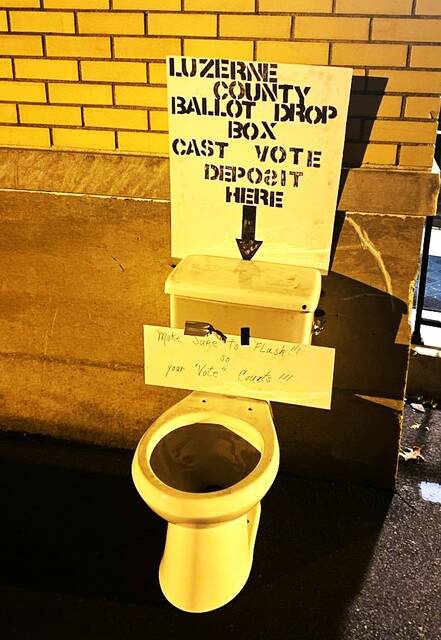 LUZERNE
COUNTY
BALLOT DROP
BOX
CAST VOTE
DEPOSIT
HERE
Make Sure to FLush!!!
so
your "Vote" Counts!!!